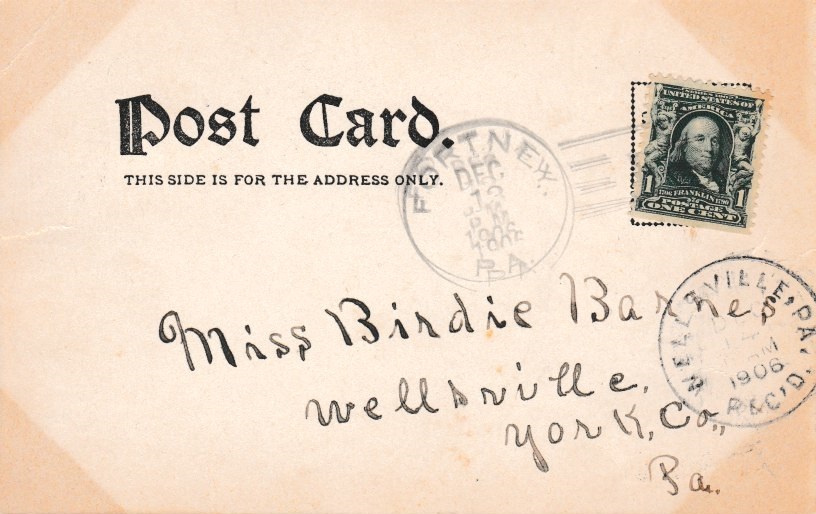 Post Card.
THIS SIDE IS FOR THE ADDRESS ONLY.
FORTNEY,
DEC
P.M
1906
PA.
UNITED STATES OF
AMERICA
1 FRANKLIN 1
POSTAGE
ONE CENT
WELLSVILLE, PA.
AM
1906
REC'D.
Miss Birdie Barnes
Wellsville,
York, Co.,
Pa.